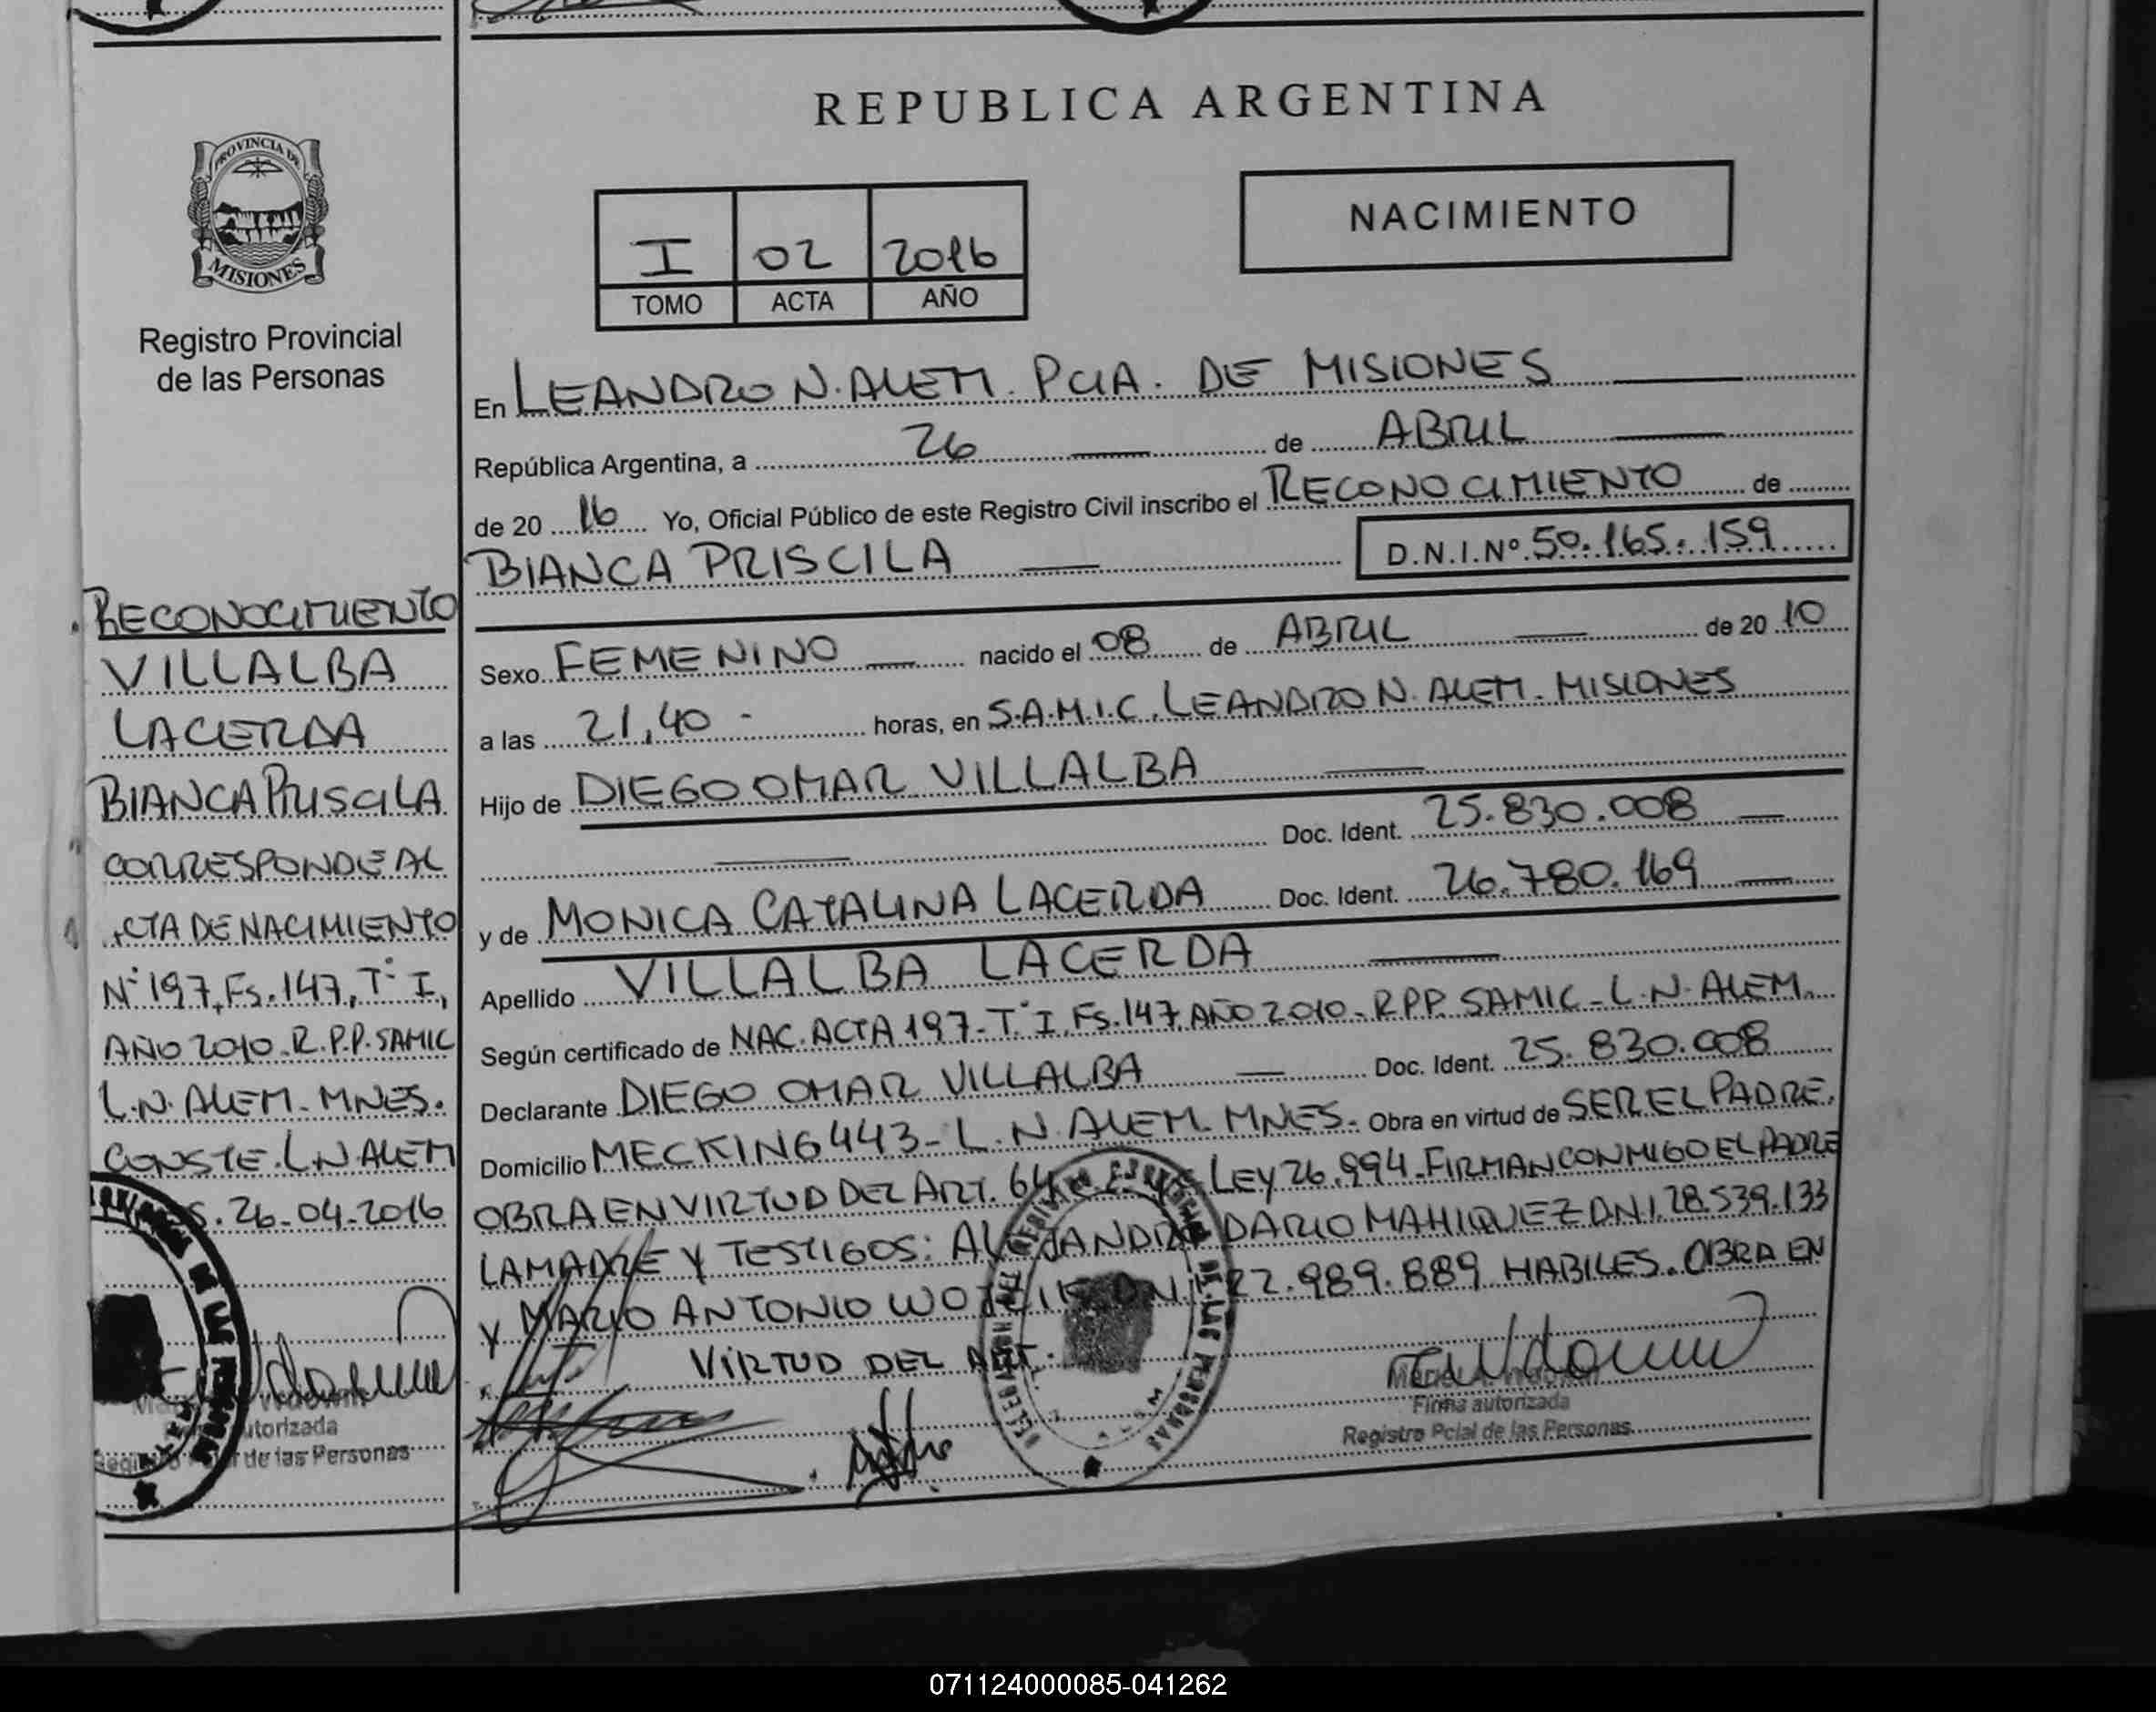 REPUBLICA ARGENTINA
PROVINCIA DE
MISIONES
Registro Provincial
de las Personas
NACIMIENTO
I 02 2016
TOMO ACTA AÑO
En LEANDRO N. ALEM. PCIA. DE MISIONES
República Argentina, a 26 de ABRIL
de 20 16 Yo, Oficial Público de este Registro Civil inscribo el RECONOCIMIENTO de
BIANCA PRISCILA D.N.I.Nº 50.165.159
Sexo FEMENINO nacido el 08 de ABRIL de 20 10
a las 21,40 - horas, en S.A.M.I.C. LEANDRO N. ALEM - MISIONES
Hijo de DIEGO OMAR VILLALBA
Doc. Ident. 25.830.008
y de MONICA CATALINA LACERDA Doc. Ident. 26.780.169
Apellido VILLALBA LACERDA
Según certificado de NAC. ACTA 197 - T° I, Fs. 147, AÑO 2010 - R.P.P. SAMIC - L.N. ALEM.
Declarante DIEGO OMAR VILLALBA Doc. Ident. 25.830.008
Domicilio MECKING 443 - L.N. ALEM - MNES. Obra en virtud de SER EL PADRE.
OBRA EN VIRTUD DEL ART. 64 LEY 26.994 - FIRMAN CONMIGO EL PADRE
LA MADRE Y TESTIGOS: ALEJANDRO DARIO MAHIQUEZ DNI. 28.539.133
Y MARIO ANTONIO DNI. 22.989.889 HABILES. OBRA EN
VIRTUD DEL ART.
Firma autorizada
Registro Pcial de las Personas
RECONOCIMIENTO
VILLALBA
LACERDA
BIANCA PRISCILA
CORRESPONDE AL
ACTA DE NACIMIENTO
N° 197, Fs. 147, T° I,
AÑO 2010 - R.P.P. SAMIC
L.N. ALEM - MNES.
CONSTE. L.N ALEM
S. 26-04-2016
utorizada
de las Personas
071124000085-041262